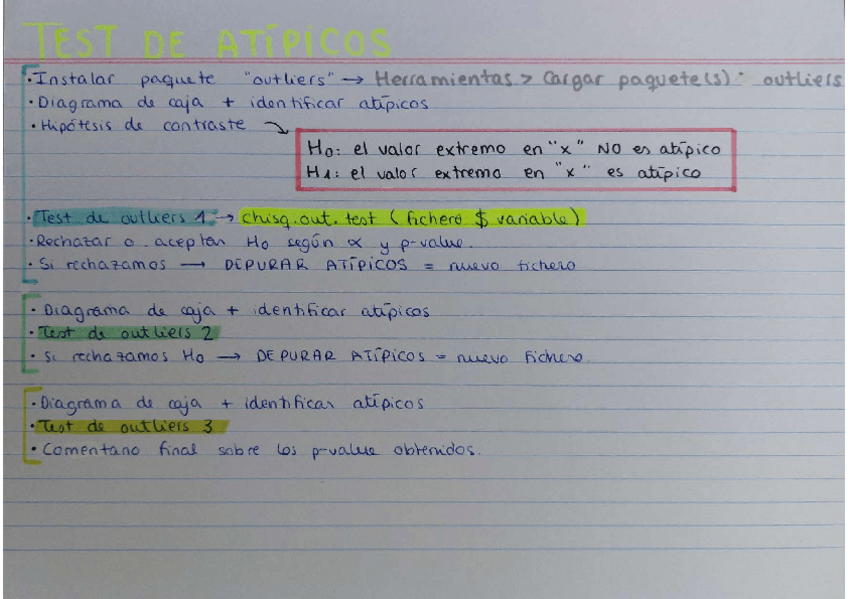 TEST DE ATÍPICOS
· Instalar paquete "outliers" → Herramientas > Cargar paquete(s): outliers
· Diagrama de caja + identificar atípicos
· Hipótesis de contraste
H0: el valor extremo en "x" NO es atípico
H1: el valor extremo en "x" es atípico
· Test de outliers 1 → chisq.out.test (fichero $ variable)
· Rechazar o aceptar H0 según α y p-value.
· Si rechazamos → DEPURAR ATÍPICOS = nuevo fichero
· Diagrama de caja + identificar atípicos
· Test de outliers 2
· Si rechazamos H0 → DEPURAR ATÍPICOS = nuevo fichero.
· Diagrama de caja + identificar atípicos
· Test de outliers 3
· Comentario final sobre los p-value obtenidos.